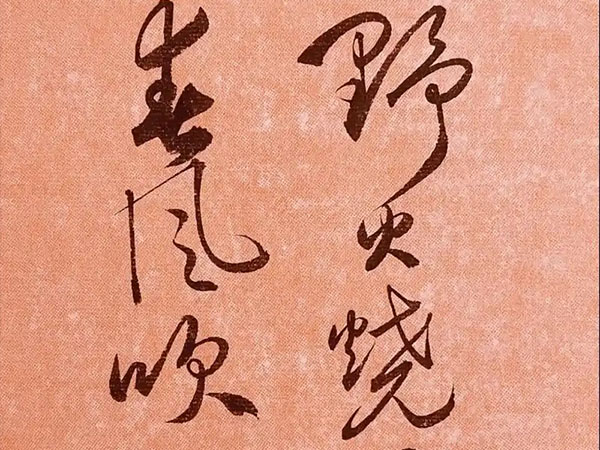 野火烧
春风吹